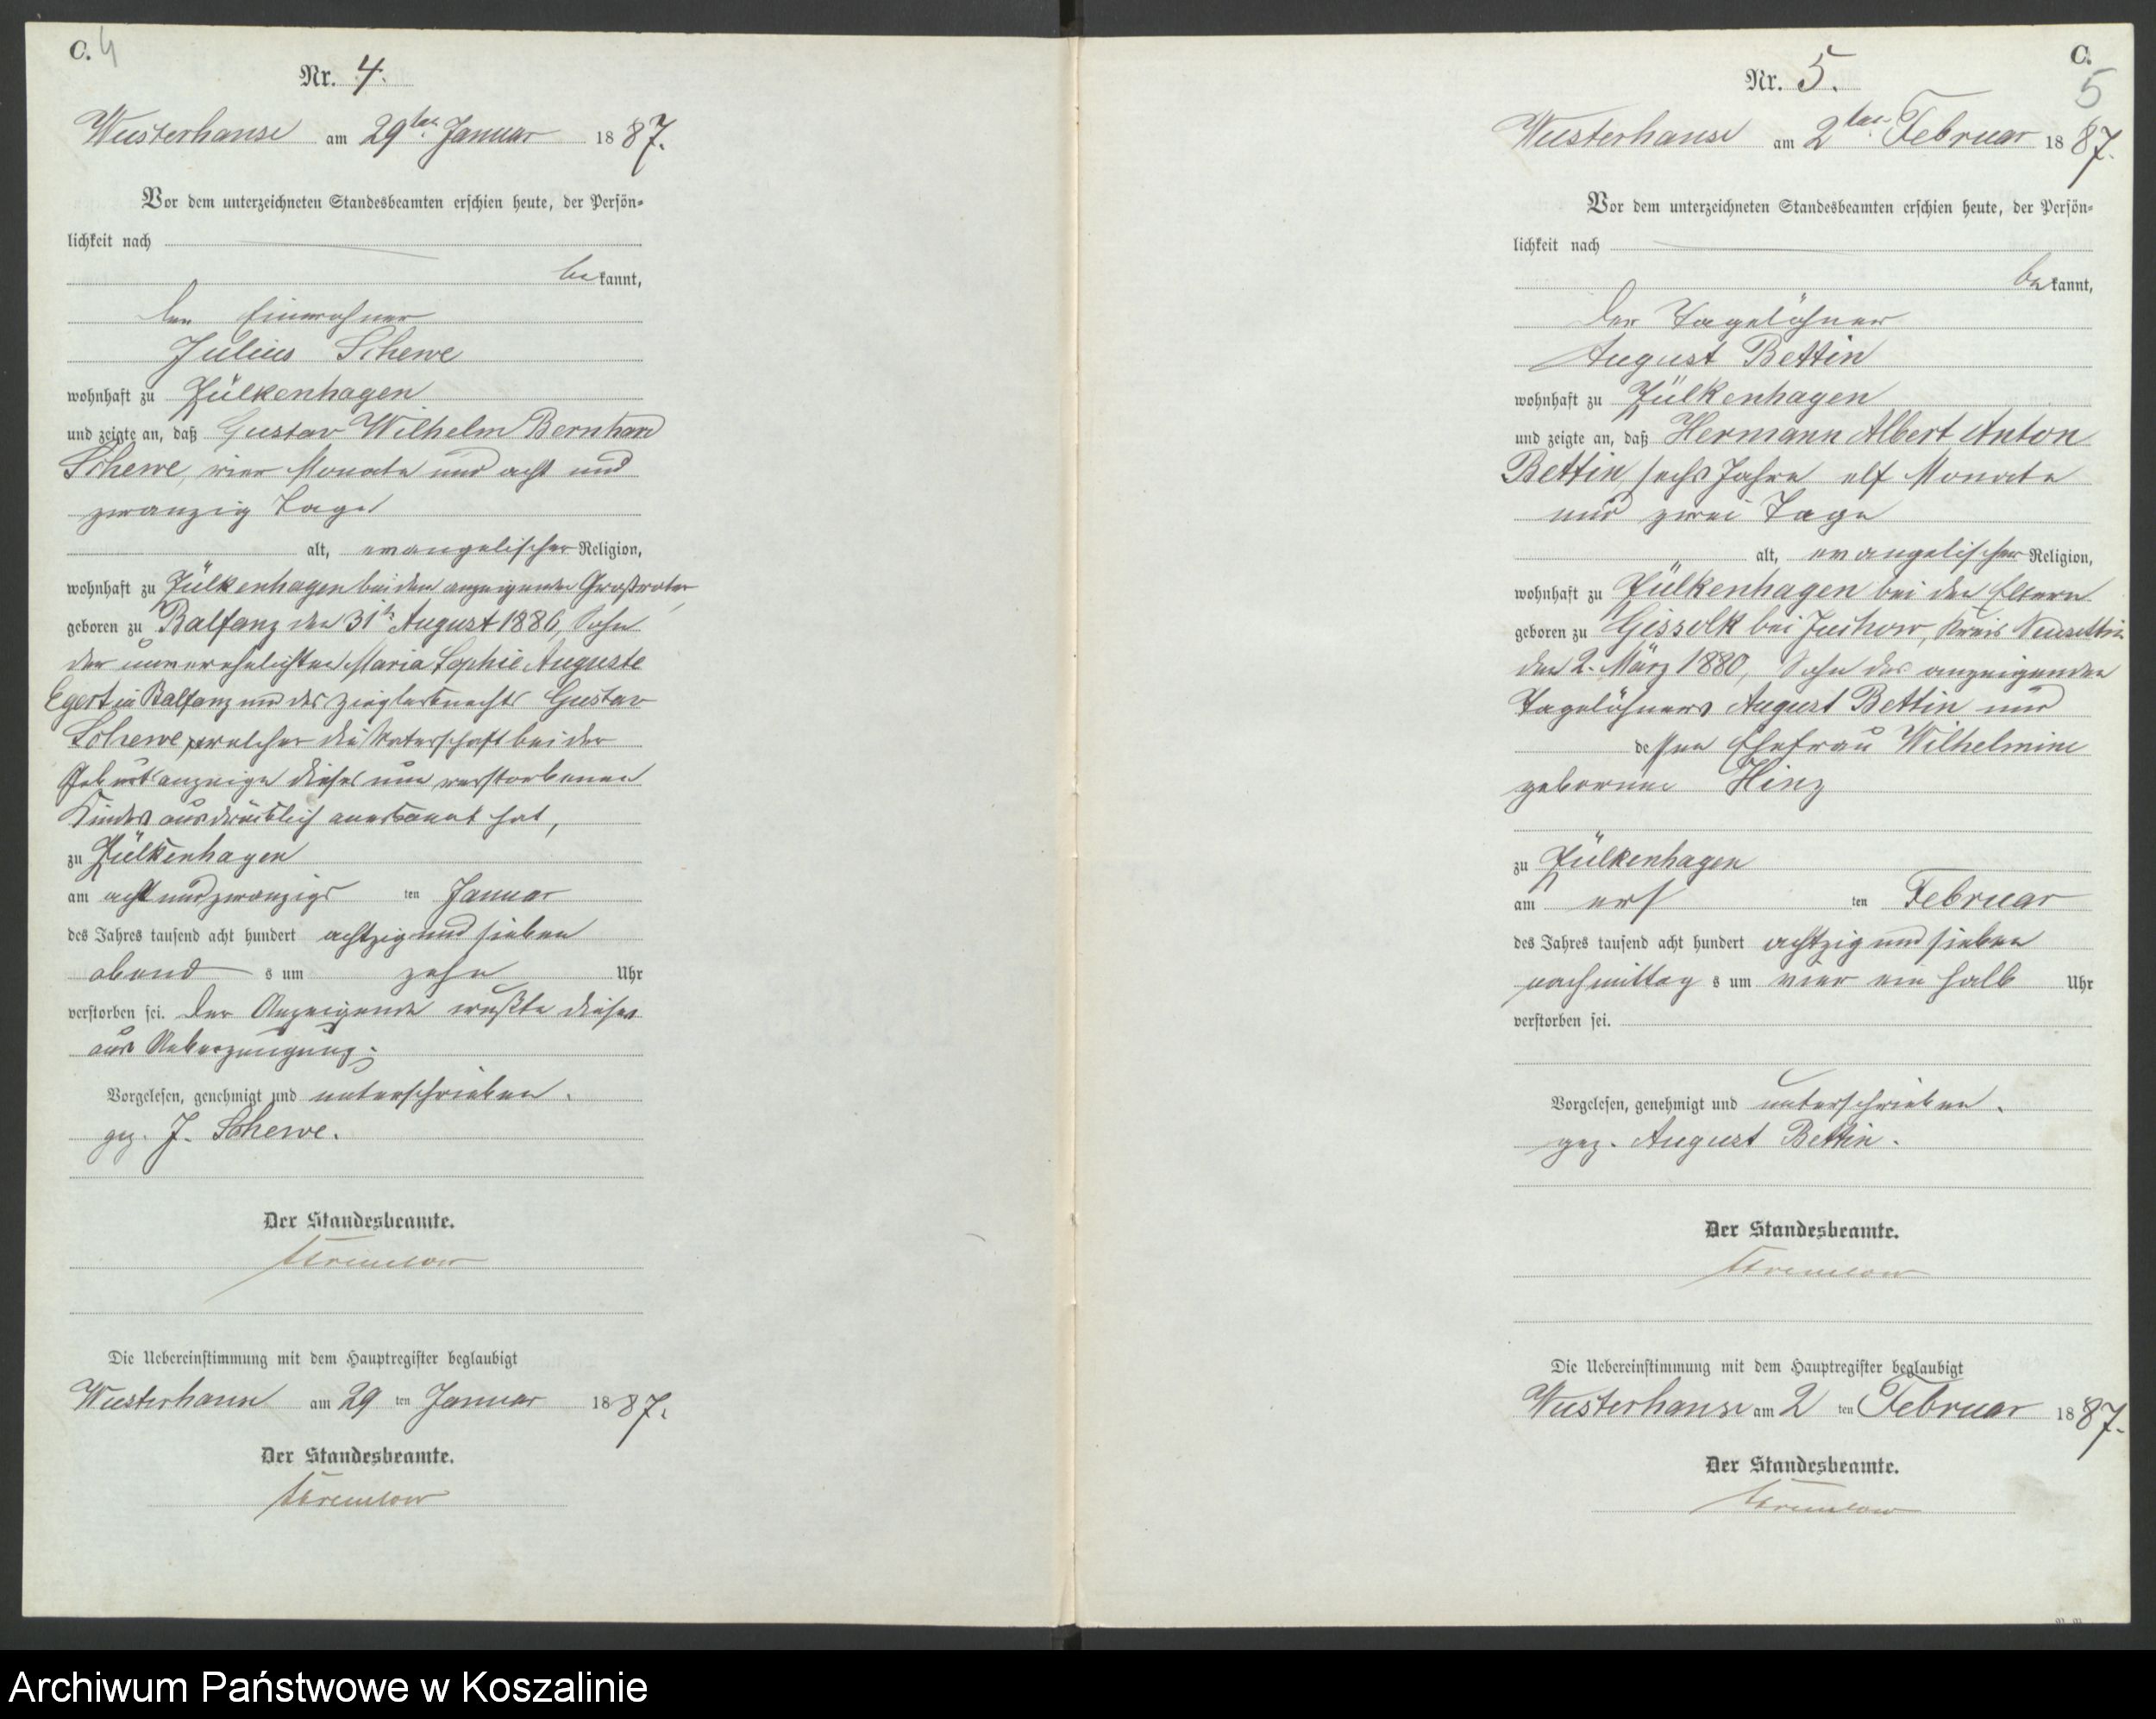 C. 4
Nr. 4.
Wusterhanse am 29ten Januar 1887.
Vor dem unterzeichneten Standesbeamten erschien heute, der Persön-
lichkeit nach
bekannt,
der Einwohner
Julius Schewe
wohnhaft zu Zülkenhagen
und zeigte an, daß Gustav Wilhelm Bernhard
Schewe, vier Monate und acht und
zwanzig Tage
alt, evangelischer Religion,
wohnhaft zu Zülkenhagen bei dem anzeigenden Großvater,
geboren zu Balfanz den 31ten August 1886, Sohn
der unverehelichten Maria Sophie Auguste
Egert in Balfanz und des Zieglerknechts Gustav
Schewe, welcher die Vaterschaft bei der
Geburtsanzeige dieses nun verstorbenen
Kindes ausdrücklich anerkannt hat,
zu Zülkenhagen
am acht und zwanzigs ten Januar
des Jahres tausend acht hundert achtzig und sieben
abend s um zehn Uhr
verstorben sei. Der Anzeigende wußte dieses
aus Ueberzeugung.
Vorgelesen, genehmigt und unterschrieben.
gez. J. Schewe.
Der Standesbeamte.
Die Uebereinstimmung mit dem Hauptregister beglaubigt
Wusterhanse am 29 ten Januar 1887.
Der Standesbeamte.
C.
5
Nr. 5.
Wusterhanse am 2ten Februar 1887.
Vor dem unterzeichneten Standesbeamten erschien heute, der Persön-
lichkeit nach
bekannt,
der Tagelöhner
August Bettin
wohnhaft zu Zülkenhagen
und zeigte an, daß Hermann Albert Anton
Bettin, sechs Jahre elf Monate
und zwei Tage
alt, evangelischer Religion,
wohnhaft zu Zülkenhagen bei den Eltern
geboren zu Gissolk bei Juchow, Kreis Neustettin
den 2. März 1880, Sohn des anzeigenden
Tagelöhners August Bettin und
dessen Ehefrau Wilhelmine
geborene Hinz
zu Zülkenhagen
am ers ten Februar
des Jahres tausend acht hundert achtzig und sieben
nachmittag s um vier ein halb Uhr
verstorben sei.
Vorgelesen, genehmigt und unterschrieben.
gez. August Bettin.
Der Standesbeamte.
Die Uebereinstimmung mit dem Hauptregister beglaubigt
Wusterhanse am 2 ten Februar 1887.
Der Standesbeamte.
Archiwum Państwowe w Koszalinie